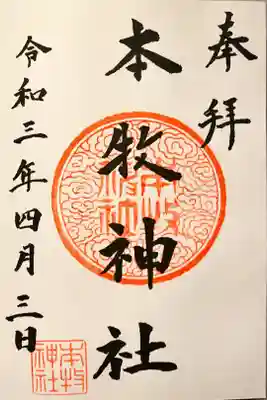 奉拝
本牧神社
令和三年四月三日
本牧
神社